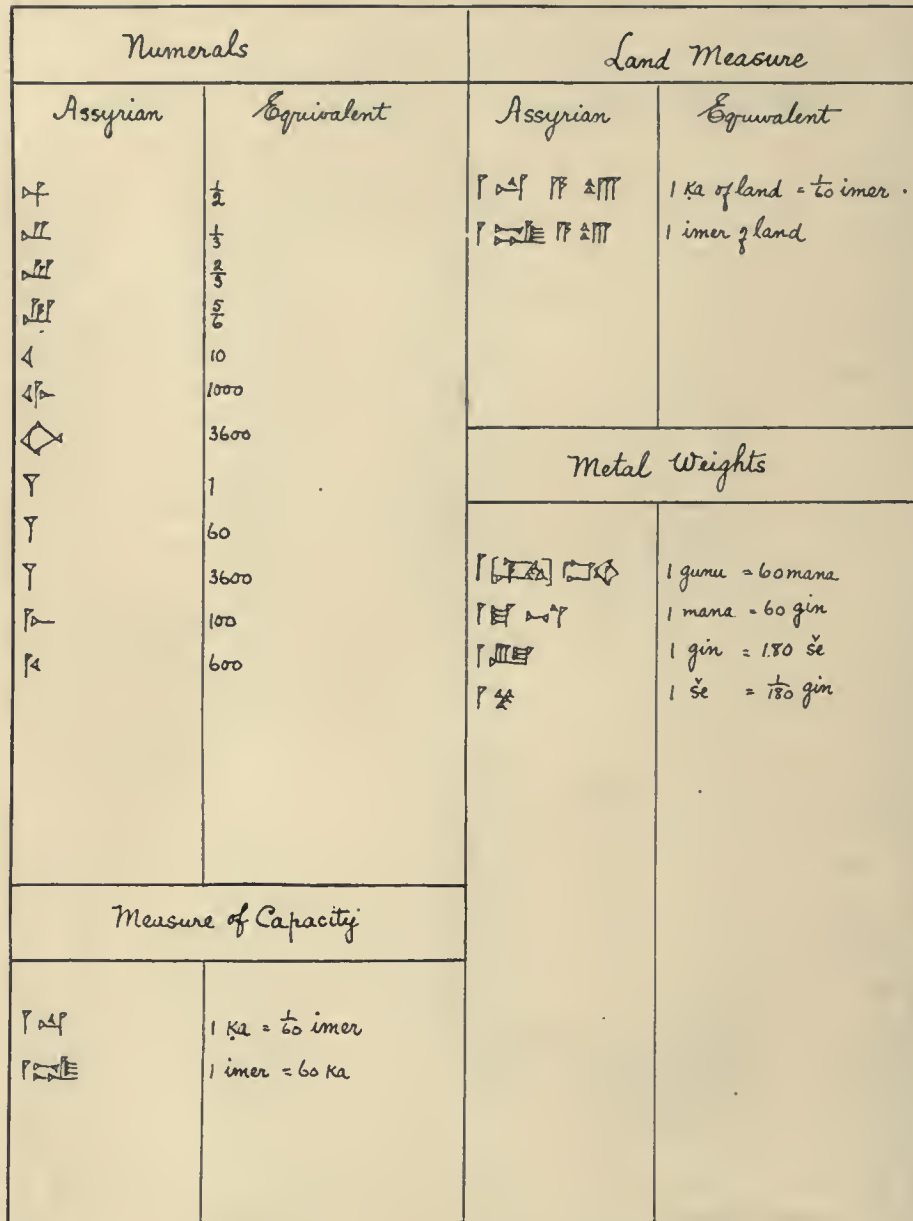 Numerals
Assyrian Equivalent
𒈦 1/2
𒑚 1/3
𒑛 2/3
𒑜 5/6
𒌋 10
𒌋𒈨 1000
𒊹 3600
𒁹 1
𒁹 60
𒁹 3600
𒈨 100
𒐞 600
Measure of Capacity
𒁹 𒋡 1 ḳa = 1/60 imer
𒁹 𒀲 1 imer = 60 ḳa
Land Measure
Assyrian Equivalent
𒁹 𒋡 𒀀 𒊮 1 ḳa of land = 1/60 imer.
𒁹 𒀲 𒀀 𒊮 1 imer of land
Metal Weights
1 gunu = 60 mana
𒁹 𒈠 𒈾 1 mana = 60 gin
𒁹 𒂆 1 gin = 180 še
𒁹 𒊺 1 še = 1/180 gin